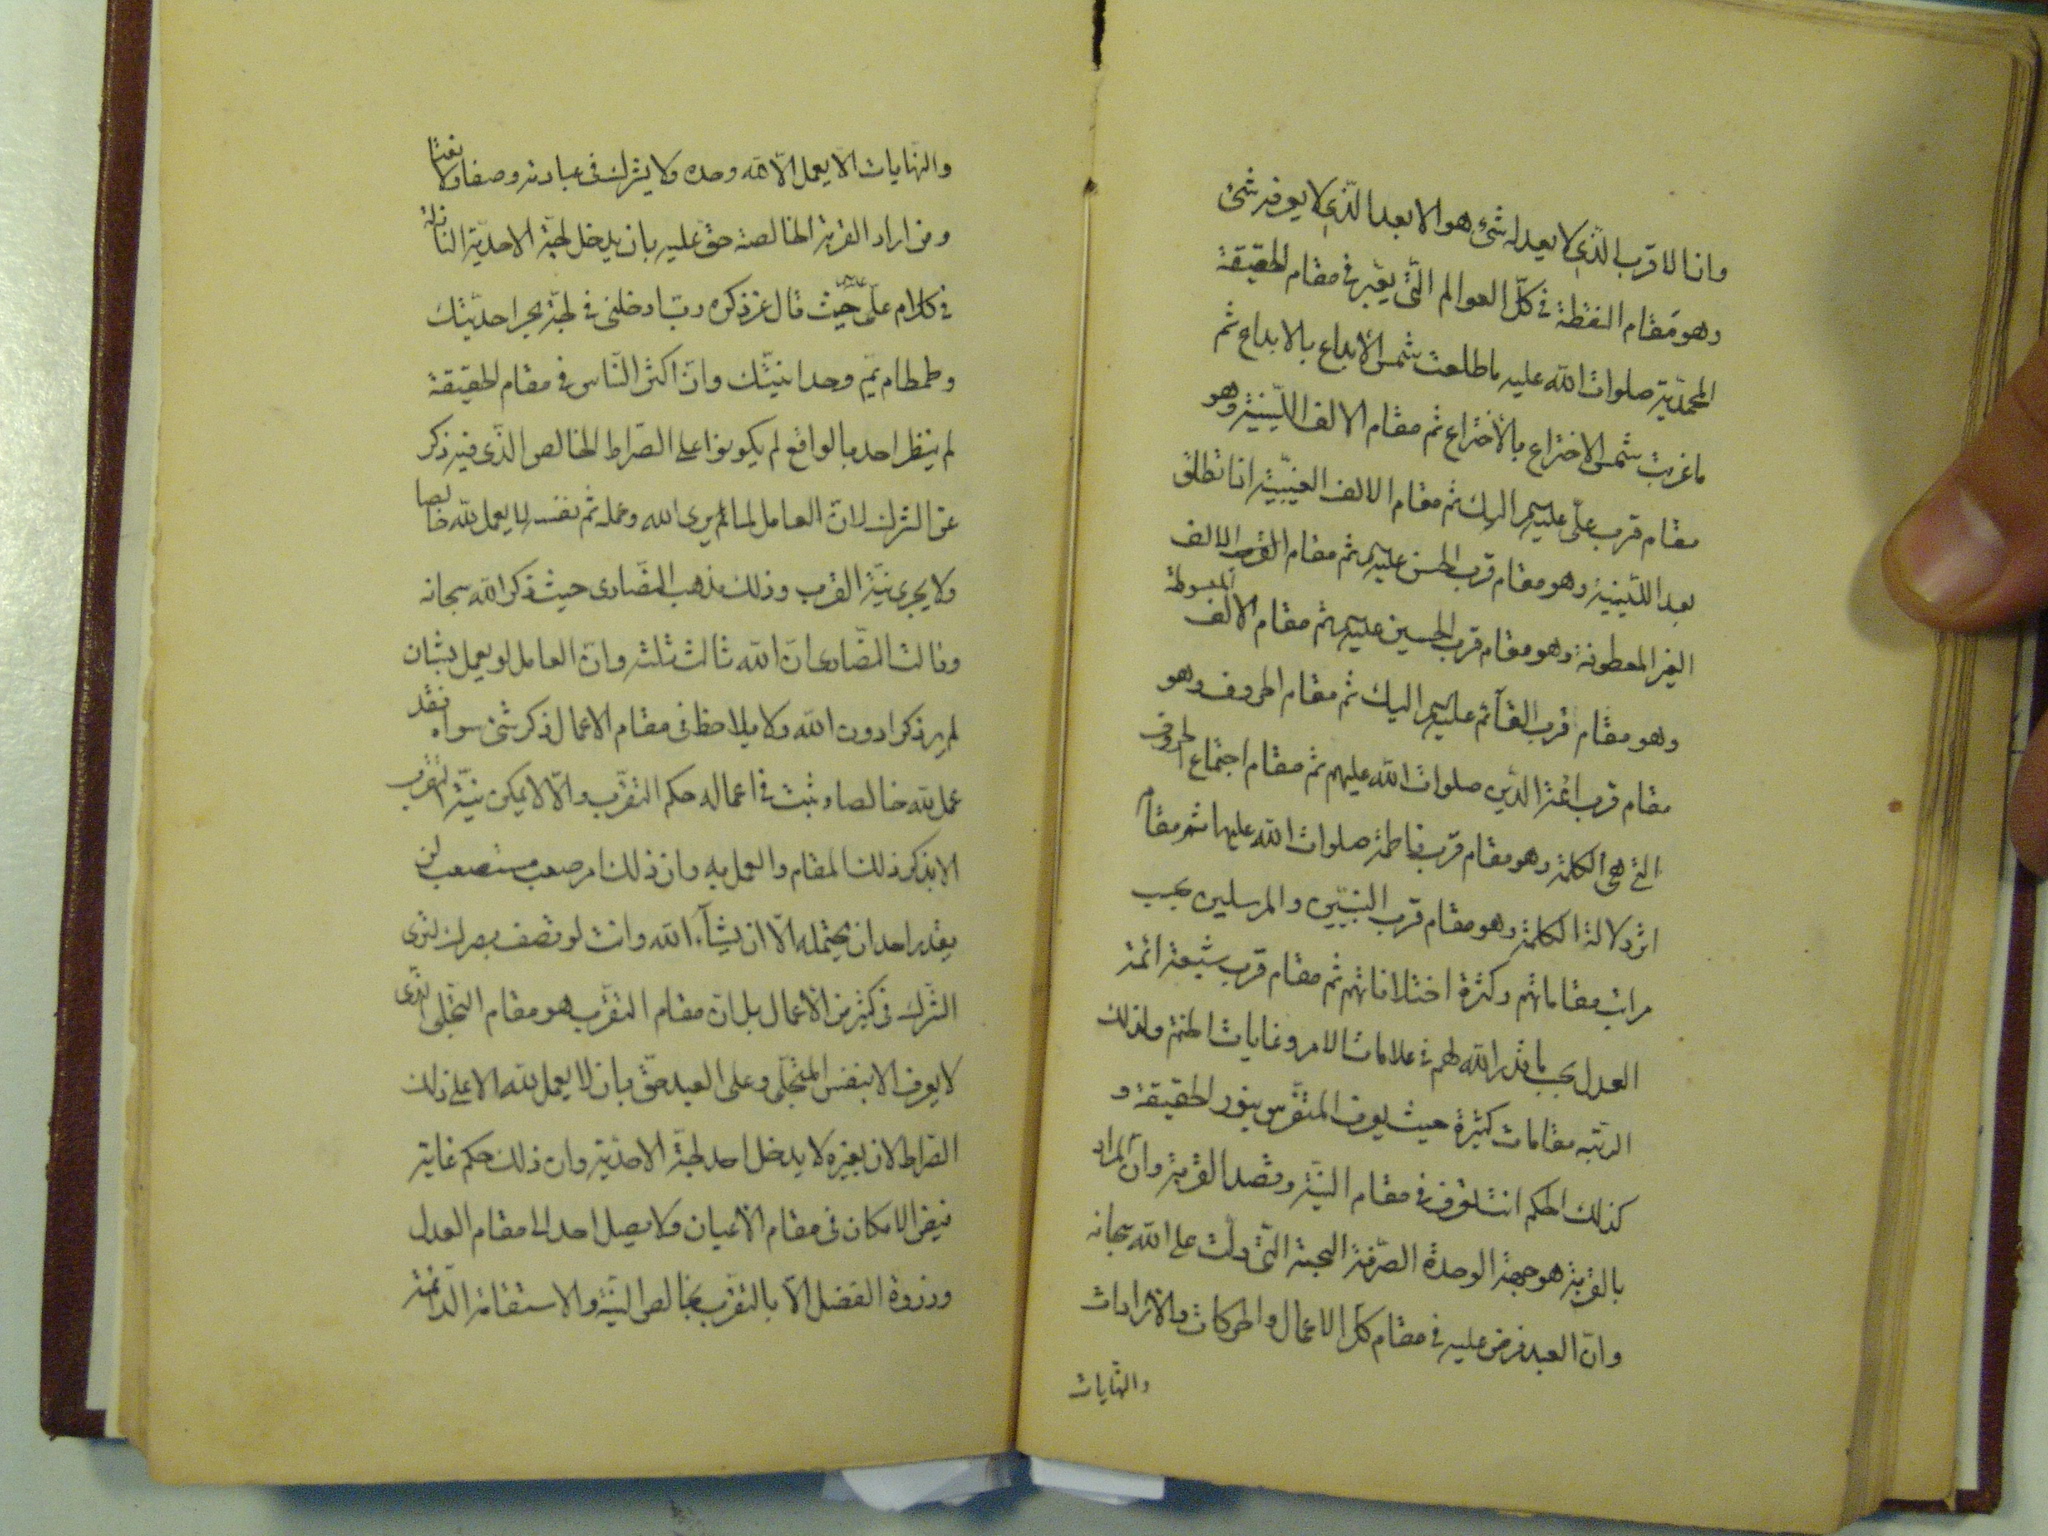 وانا لاقرب الذي لا يعدله شئ هو الابعد الذي لا يعرفه شئ
وهو مقام النقطة في كل العوالم التي يعبر في مقام الحقيقة
المحمدية صلوات الله عليه ما طلعت شمس الابداع بالابداع ثم
ما غربت شمس الاختراع بالاختراع ثم مقام الالف اللينية وهو
مقام قرب علي عليه السلام اليك ثم مقام الالف الغيبية انا تطلق
بعد اللينية وهو مقام قرب الحسن عليه السلام ثم مقام القرب الالف
الغير المعطوفة وهو مقام قرب الحسين عليه السلام ثم مقام الالف المبسوطة
وهو مقام قرب القآئم عليه السلام اليك ثم مقام الحروف وهو
مقام قرب ائمة الدين صلوات الله عليهم ثم مقام اجتماع الحروف
التي هي الكلمة وهو مقام قرب فاطمة صلوات الله عليها ثم مقام
اثر دلالة الكلمة وهو مقام قرب النبيين والمرسلين بحسب
مراتب مقاماتهم وكثرة اختلافاتهم ثم مقام قرب شيعة ائمة
العدل بحسب ما قدر الله لهم في علامات الامر وغايات الختم ولذلك
الرتبه مقامات كثيرة حيث يعرف المتفرس بنور الحقيقة و
كذلك الحكم انت لتعرف في مقام النية وقصد القربة وان المراد
بالقربة هو جهة الوحدة الصرفة البحتة التي دلت على الله سبحانه
وان العبد فرض عليه في مقام كل الاعمال والحركات والارادات
والنهايات
والنهايات الا يعمل الا لله وحده ولا يشرك في عبادته وصفا ولا نعتا
ومن اراد القربة الخالصة حق عليه بان يدخل لجة الاحدية النازلة
في كلام علي عليه السلام حيث قال عز ذكره رب ادخلني في لجة بحر احديتك
وطمطام يم وحدانيتك وان اكثر الناس في مقام الحقيقة
لم ينظر احد بالواقع لم يكونوا على الصراط الخالص الذي فيه ذكر
عن الشرك لان العامل لما لم يرى الله وعمله ثم نفسه لا يعمل لله خالصا
ولا يجرى نية القرب وذلك مذهب النصارى حيث ذكر الله سبحانه
وقالت النصارى ان الله ثالث ثلثه وان العامل لو يعمل بشان
لم ير ذكرا دون الله ولا يلاحظ في مقام الاعمال ذكر شئ سواه فقد
عمل لله خالصا ويثبت في اعماله حكم التقرب والا لا يمكن نية التقرب
الا بذكر ذلك المقام والعمل به وان ذلك امر صعب مستصعب لن
يقدر احد ان يحتمله الا ان يشآء الله وانت لو تصف بصرك لترى
الشرك في كثير من الاعمال بل ان مقام التقرب هو مقام التجلى الذي
لا يعرف الا بنفس المتجلى وعلى العبد حق بان لا يعمل لله الا على ذلك
الصراط لان بغيره لا يدخل احد لجة الاحدية وان ذلك حكم غاية
فيض الامكان في مقام الاعيان ولا يصل احد الى مقام العدل
وذروة الفضل الا بالتقرب بخالص النية والاستقامة الدائمة